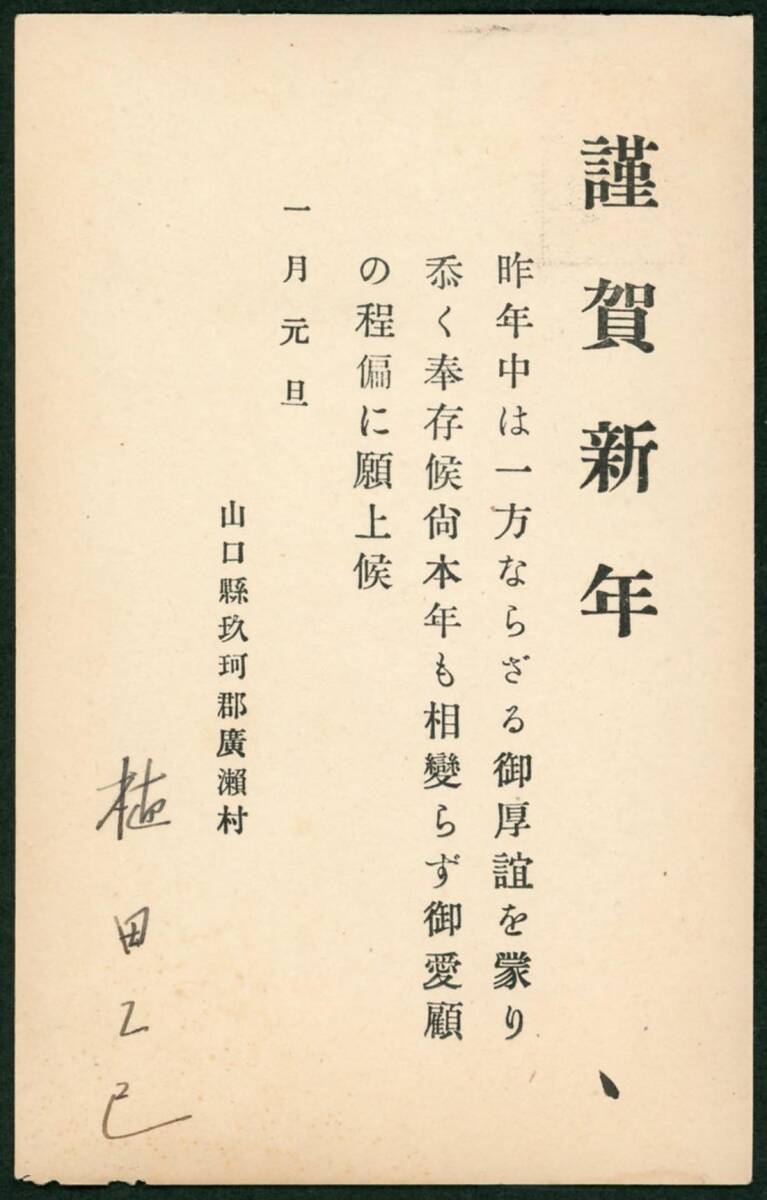 謹賀新年
昨年中は一方ならざる御厚誼を蒙り
忝く奉存候尙本年も相變らず御愛顧
の程偏に願上候
一月元旦
山口縣玖珂郡廣瀨村
植田乙已